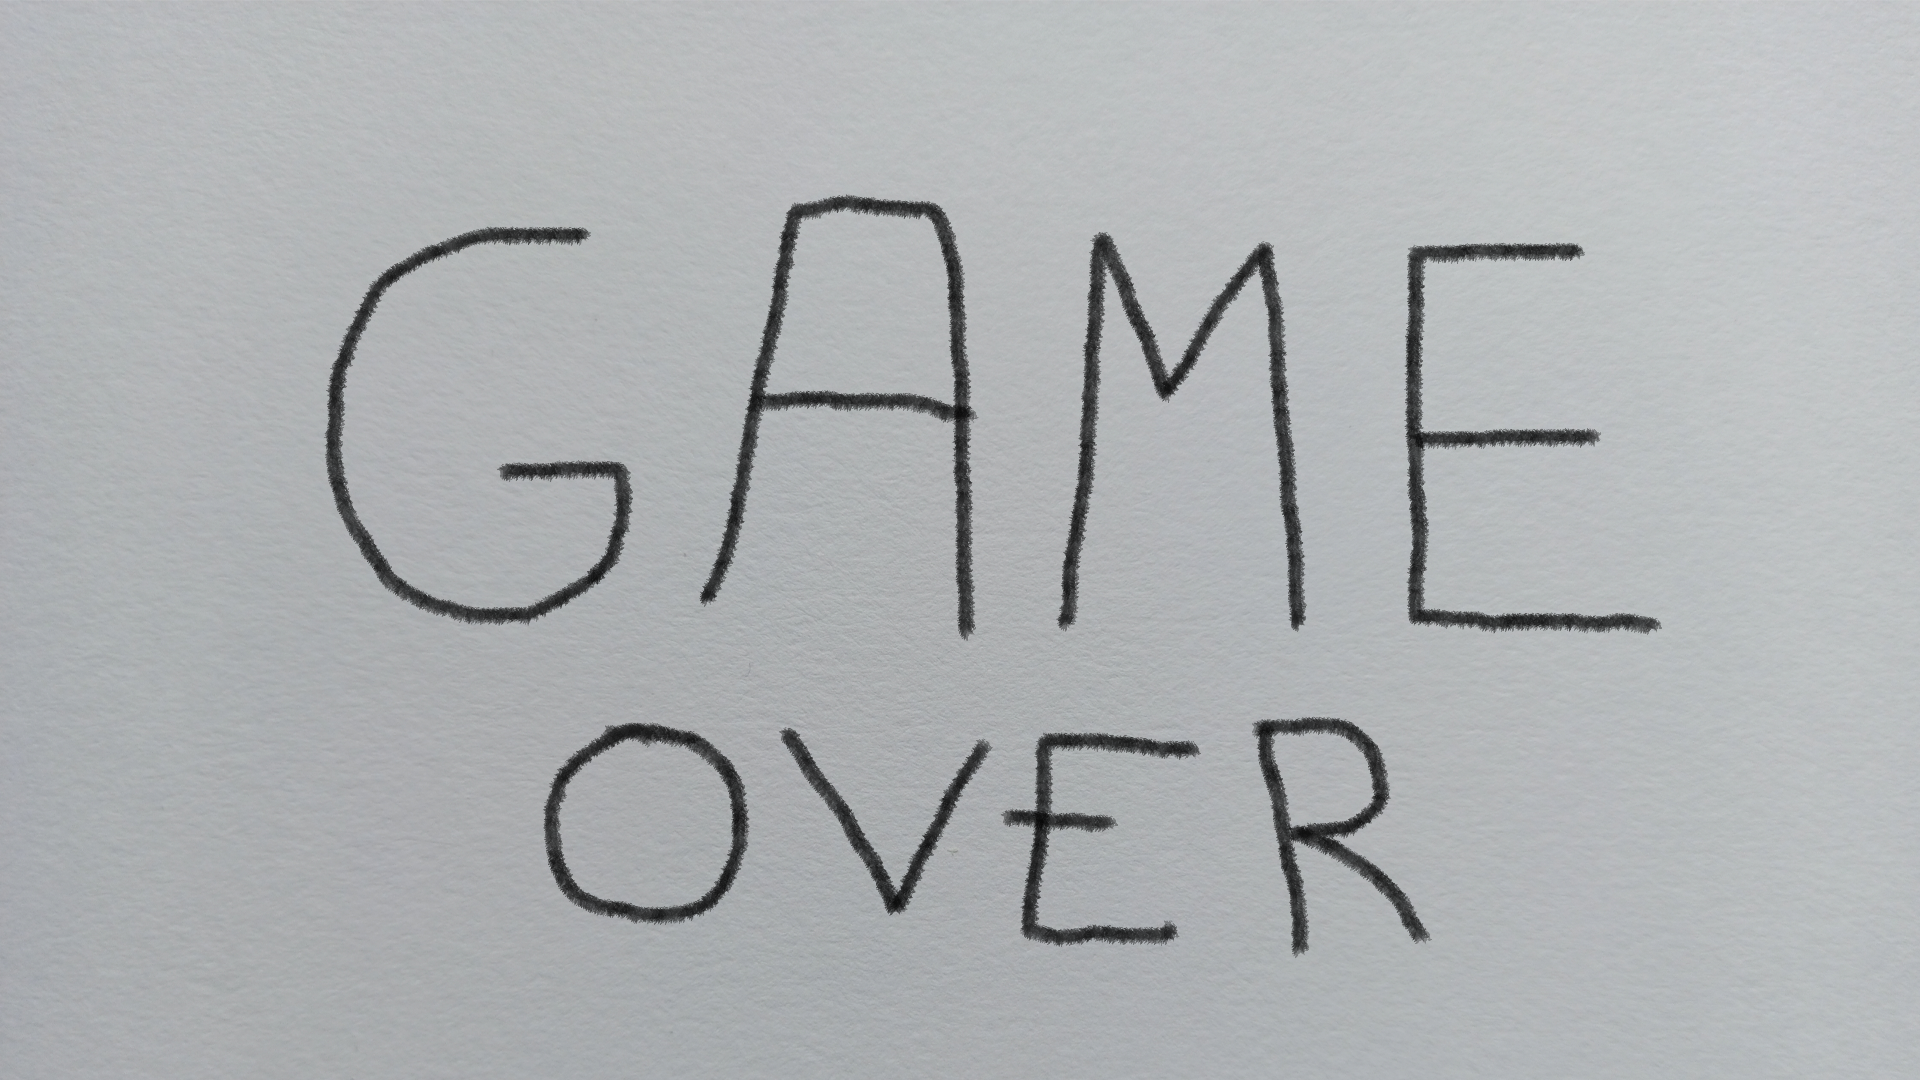 GAME
OVER